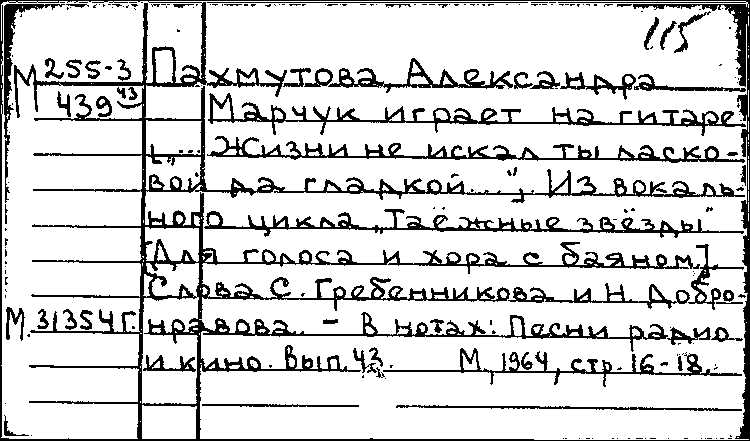 115
М 255-3 Пахмутова, Александра
439 43 Марчук играет на гитаре
[„... Жизни не искал ты ласко-
вой да гладкой...“]. Из вокаль-
ного цикла „Таёжные звёзды“
[Для голоса и хора с баяном].
Слова С. Гребенникова и Н. Добро-
М. 31354 г. нравова. - В нотах: Песни радио
и кино. Вып. 43. М., 1964, стр. 16-18.